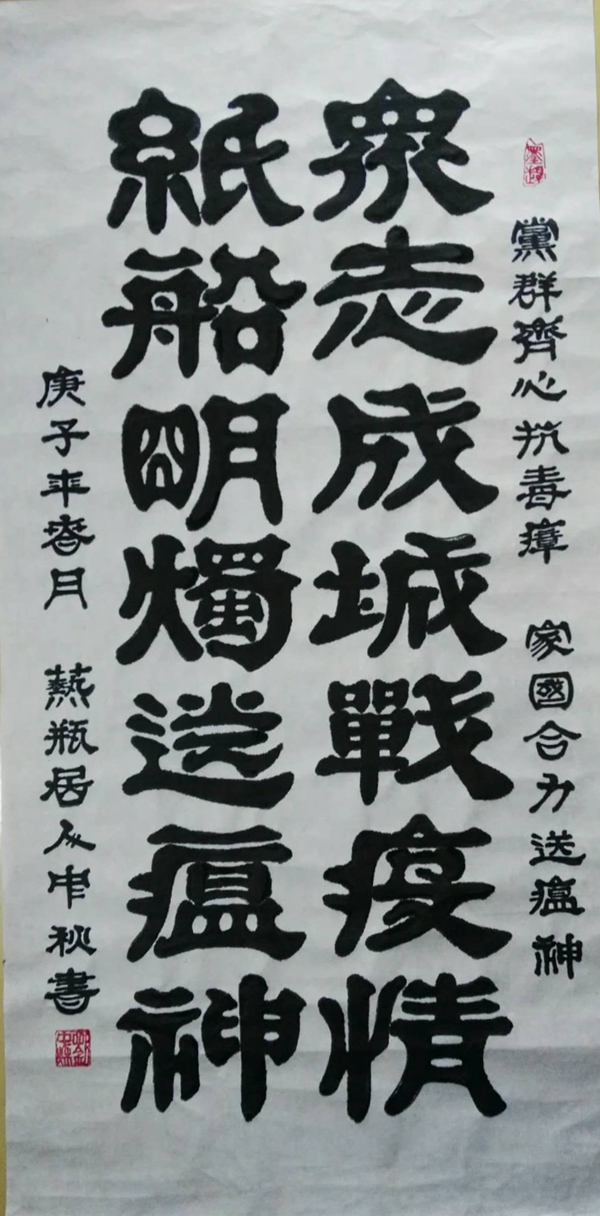 黨群齊心抗毒瘴 家國合力送瘟神
眾志成城戰疫情
紙船明燭送瘟神
庚子年春月 爇瓶居人中秋書